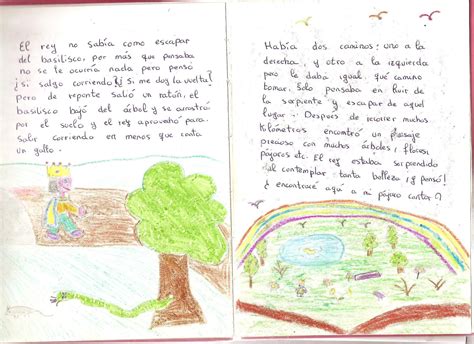 El rey no sabía como escapar
del basilisco, por más que pensaba
no se le ocurría nada pero pensó
¿Si salgo corriendo? ¿Si me doy la vuelta?
Pero de repente salió un ratón, el
basilisco bajó del árbol y se arrastró
por el suelo y el rey aprovechó para
salir corriendo en menos que canta
un gallo.
Había dos caminos: uno a la
derecha, y otro a la izquierda
pero le daba igual, qué camino
tomar. Solo pensaba en huir de
la serpiente y escapar de aquel
lugar. Después de recorrer muchos
kilómetros encontró un paisaje
precioso con muchos árboles, flores,
pájaros etc. El rey estaba sorprendido
al contemplar tanta belleza y pensó!
¿encontraré aquí a mi pájaro cantor?